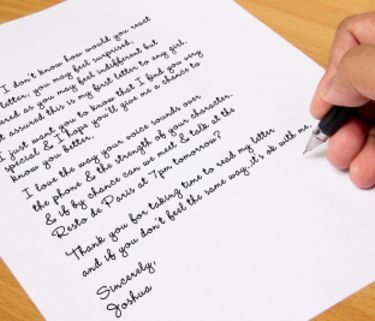 I don't know how would you react
letter, you may feel surprised,
ered as you may feel indifferent but
t assured this is my first letter to any girl.
I just want you to know that I find you very
special & I hope you'll give me a chance to
know you better.
I love the way your voice sounds over
the phone & the strength of your character.
& if by chance can we meet & talk at the
Resto de Paris at 7pm tomorrow?
Thank you for taking time to read my letter
and if you don't feel the same way..it's ok with me.
Sincerely,
Joshua